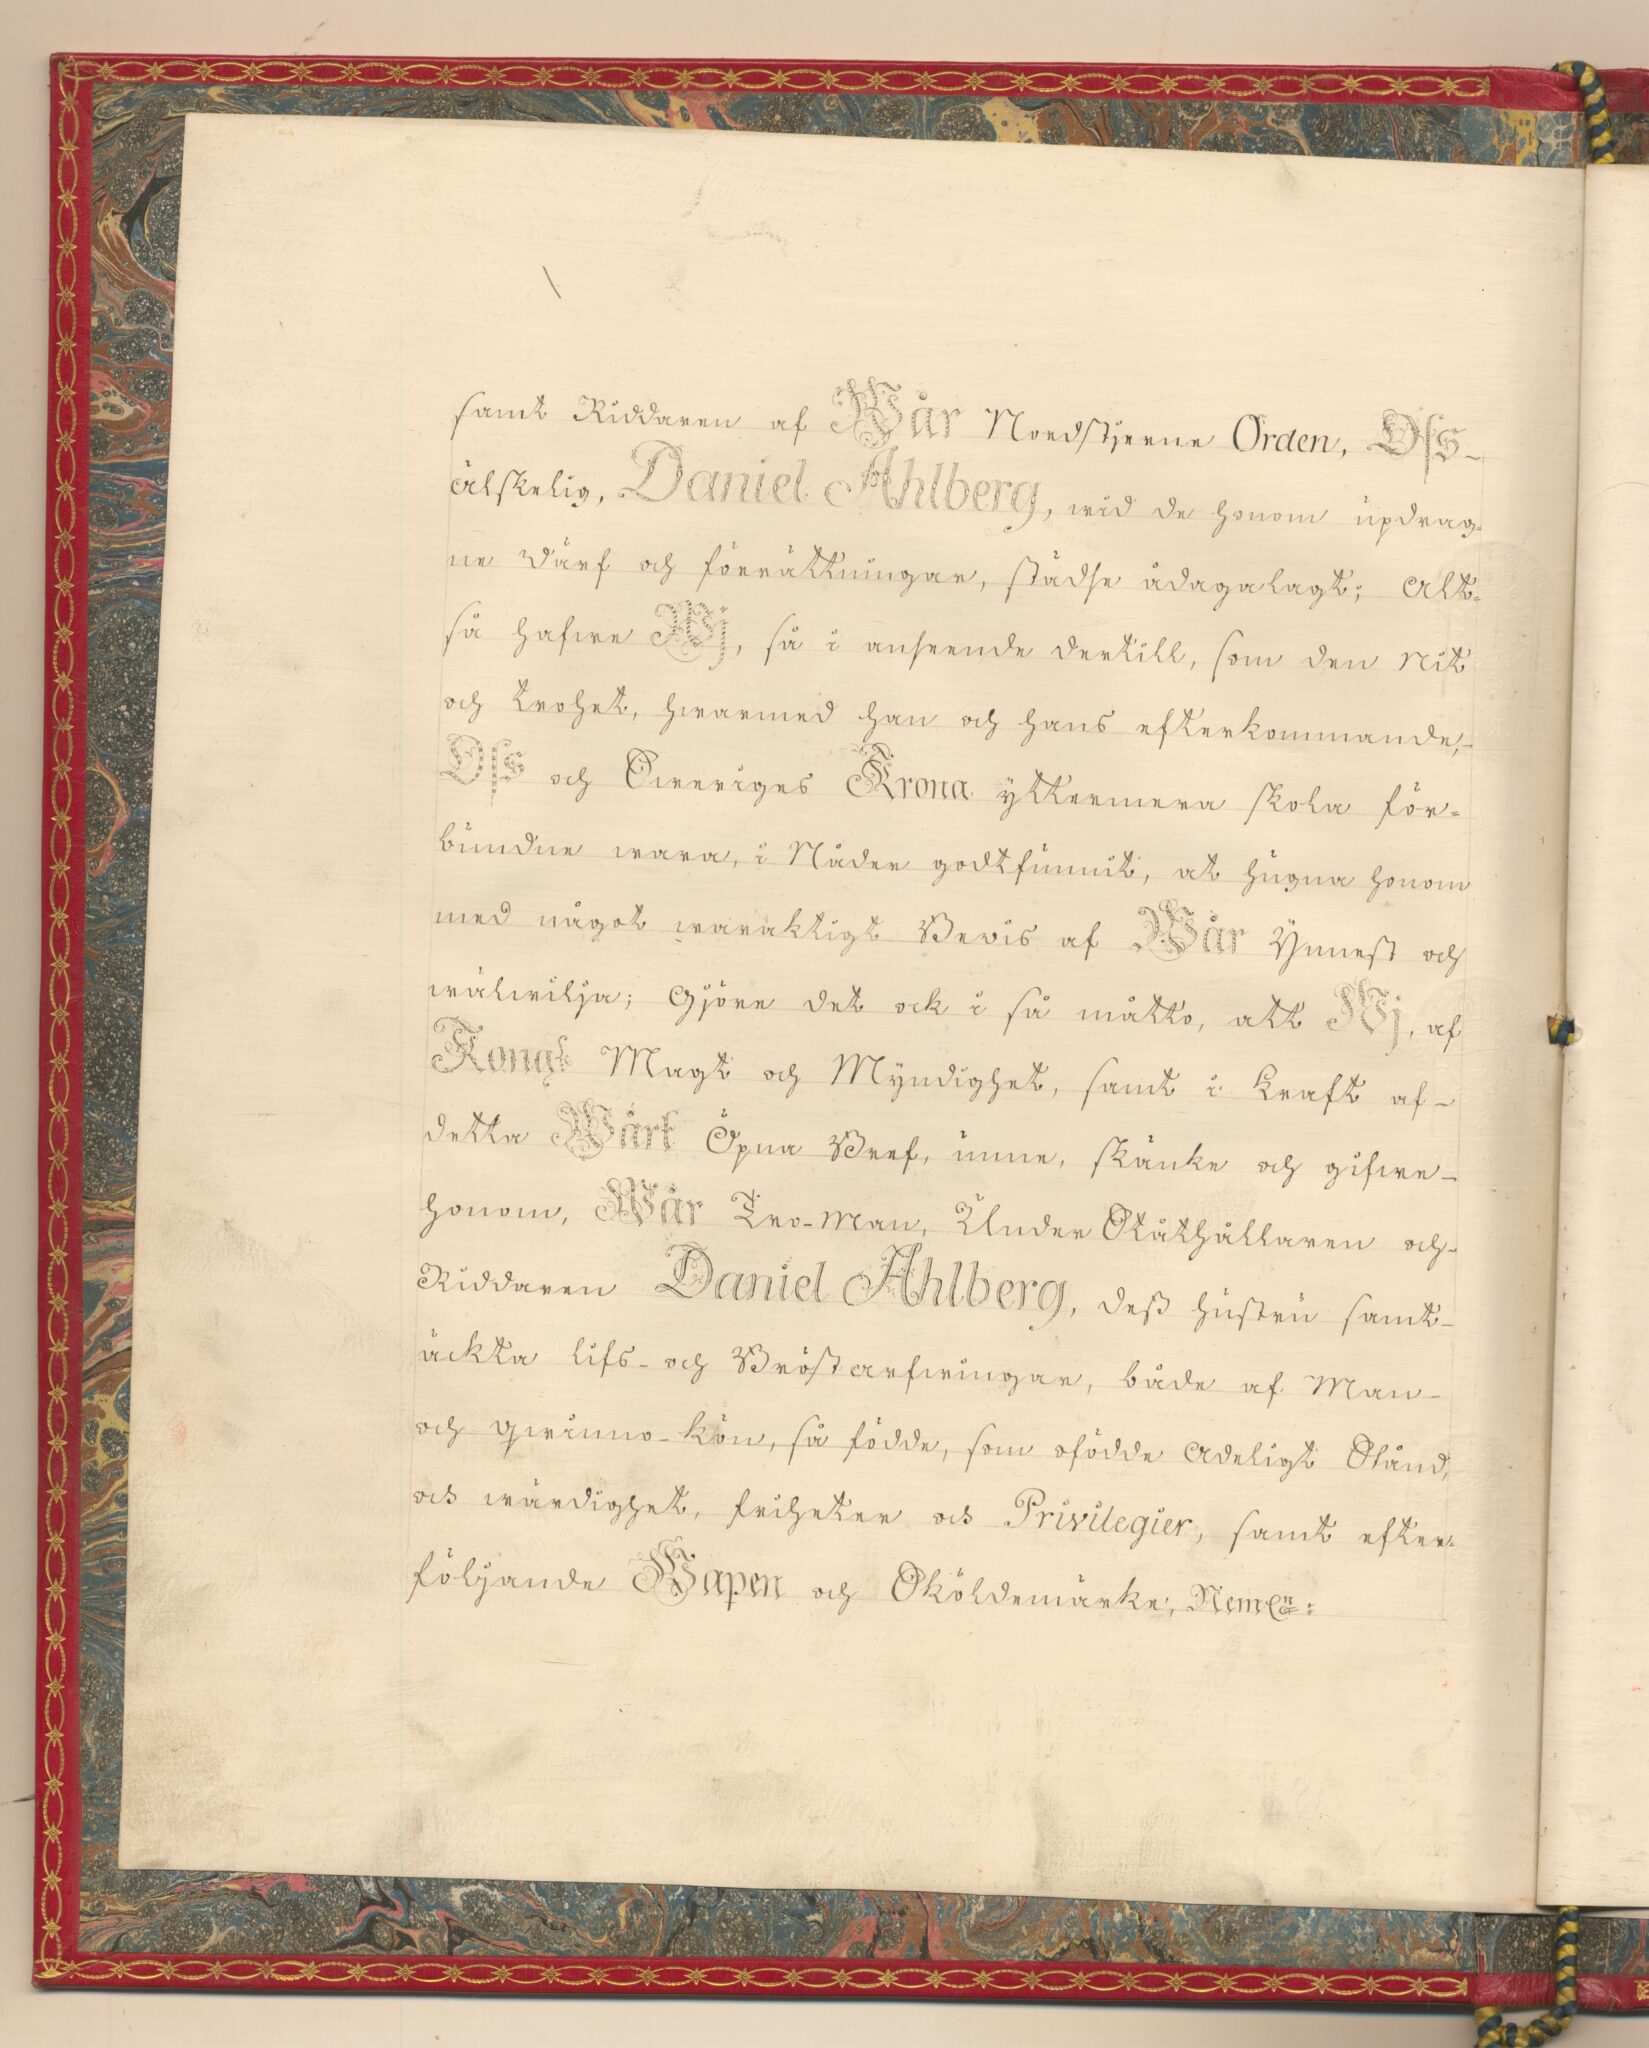 samt Riddaren af Wår Nordstjerne Orden, Oſs
älskelig, Daniel Ahlberg, wid de honom updrag-
ne värf och förrättningar, städse ådagalagt; Alt-
så hafwe Wj, så i anseende dertill, som den Nit
och trohet, hwarmed han och hans efterkommande,
Oſs och Sweriges Krona yttermera skola för-
bundne wara, i Nåder godtfunnit, at hugna honom
med något waraktigt Bewis af Wår Ynnest och
wälwilja; Gjöre det ock i så måtto, att Wj, af
Kongl Magt och Myndighet, samt i kraft af
detta Wårt Öpna Bref, unne, skänke och gifwe
honom, Wår Tro-Man, Under Ståthållaren och
Riddaren Daniel Ahlberg, deß hustru samt
äckta lifs- och Bröstarfwingar, både af Man-
och qwinno-kön, så födde, som ofödde Adeligt Stånd,
och wärdighet, friheter och Privilegier, samt efter-
följande Wapen och Sköldemärke; Nemln: